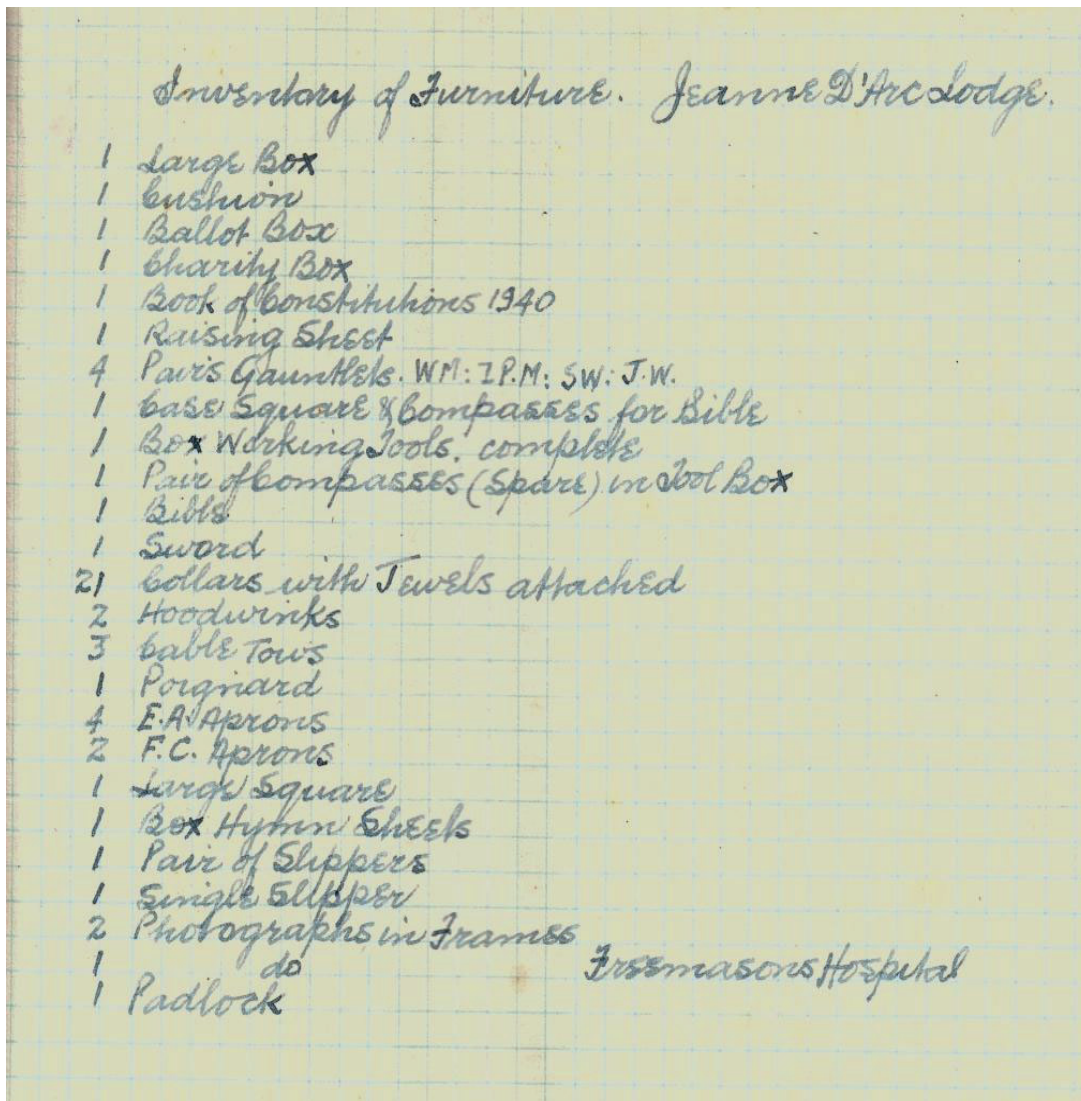 Inventory of Furniture. Jeanne D'Arc Lodge.
1 Large Box
1 Cushion
1 Ballot Box
1 Charity Box
1 Book of Constitutions 1940
1 Raising Sheet
4 Pairs Gauntlets. WM: I P.M: SW: J.W.
1 Case Square & Compasses for Bible
1 Box Working Tools. complete
1 Pair of Compasses (Spare) in Tool Box
1 Bible
1 Sword
21 Collars with Jewels attached
2 Hoodwinks
3 Cable Tows
1 Poigniard
4 E.A. Aprons
2 F.C. Aprons
1 Large Square
1 Box Hymn Sheets
1 Pair of Slippers
1 Single Slipper
2 Photographs in Frames
1 do Freemasons Hospital
1 Padlock